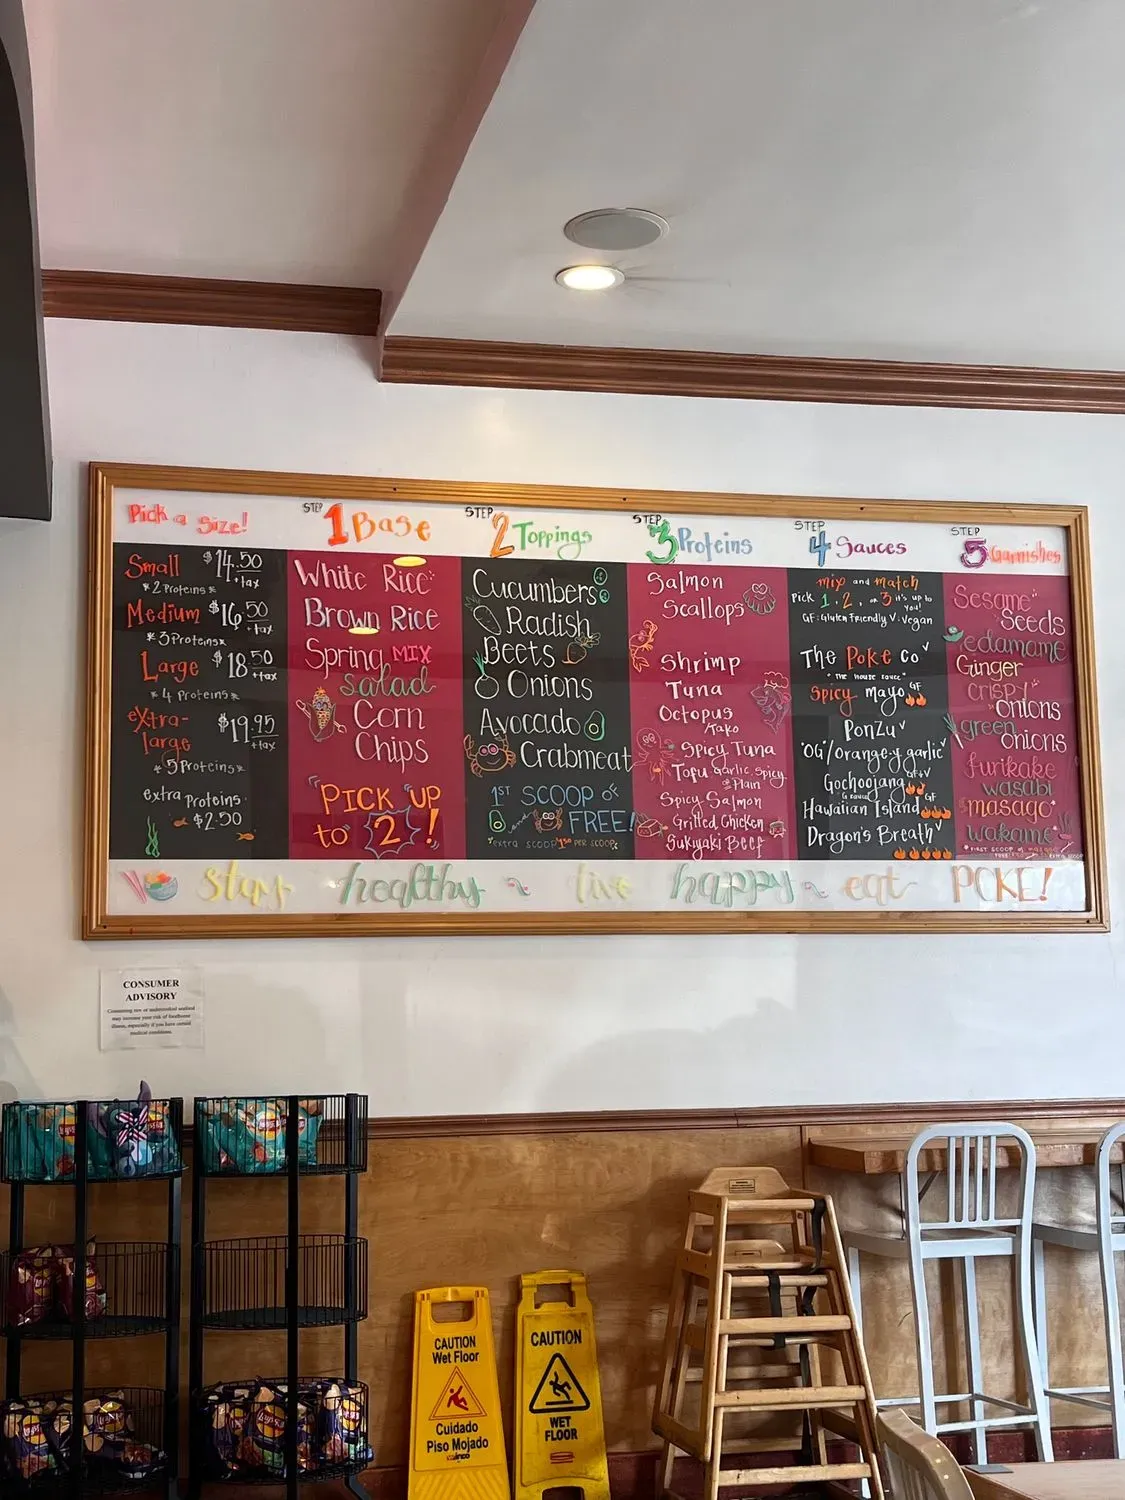 Pick a Size!
Small $14.50 +tax
*2 Proteins*
Medium $16.50 +tax
*3 Proteins*
Large $18.50 +tax
*4 Proteins*
extra-large $19.95 +tax
*5 Proteins*
extra Proteins.
+ $2.50
STEP 1 Base
White Rice
Brown Rice
Spring MIX
salad
Corn
Chips
"PICK UP
to 2"!
STEP 2 Toppings
Cucumbers
Radish
Beets
Onions
Avocado
Crabmeat
1ST SCOOP OF
and FREE!
*extra scoop 1.50 per scoop*
STEP 3 Proteins
Salmon
Scallops
Shrimp
Tuna
Octopus
/tako
Spicy Tuna
Tofu garlic, spicy
or Plain
Spicy Salmon
Grilled Chicken
Sukiyaki Beef
STEP 4 Sauces
mix and match
Pick 1, 2, or 3 it's up to
you!
GF: Gluten Friendly V: Vegan
The Poke Co V
"The house sauce"
Spicy mayo GF
PonZu V
"OG"/orange-y garlic V
Gochoojang GF+V
Hawaiian Island GF
Dragon's Breath V
STEP 5 Garnishes
Sesame
Seeds
edamame
Ginger
crispy
onions
green
onions
furikake
wasabi
*masago*
wakame
stay healthy ~ live happy ~ eat POKE!
CONSUMER
ADVISORY
Consuming raw or undercooked seafood
may increase your risk of foodborne
illness, especially if you have certain
medical conditions.
Lay's
CAUTION
Wet Floor
Cuidado
Piso Mojado
CAUTION
WET
FLOOR